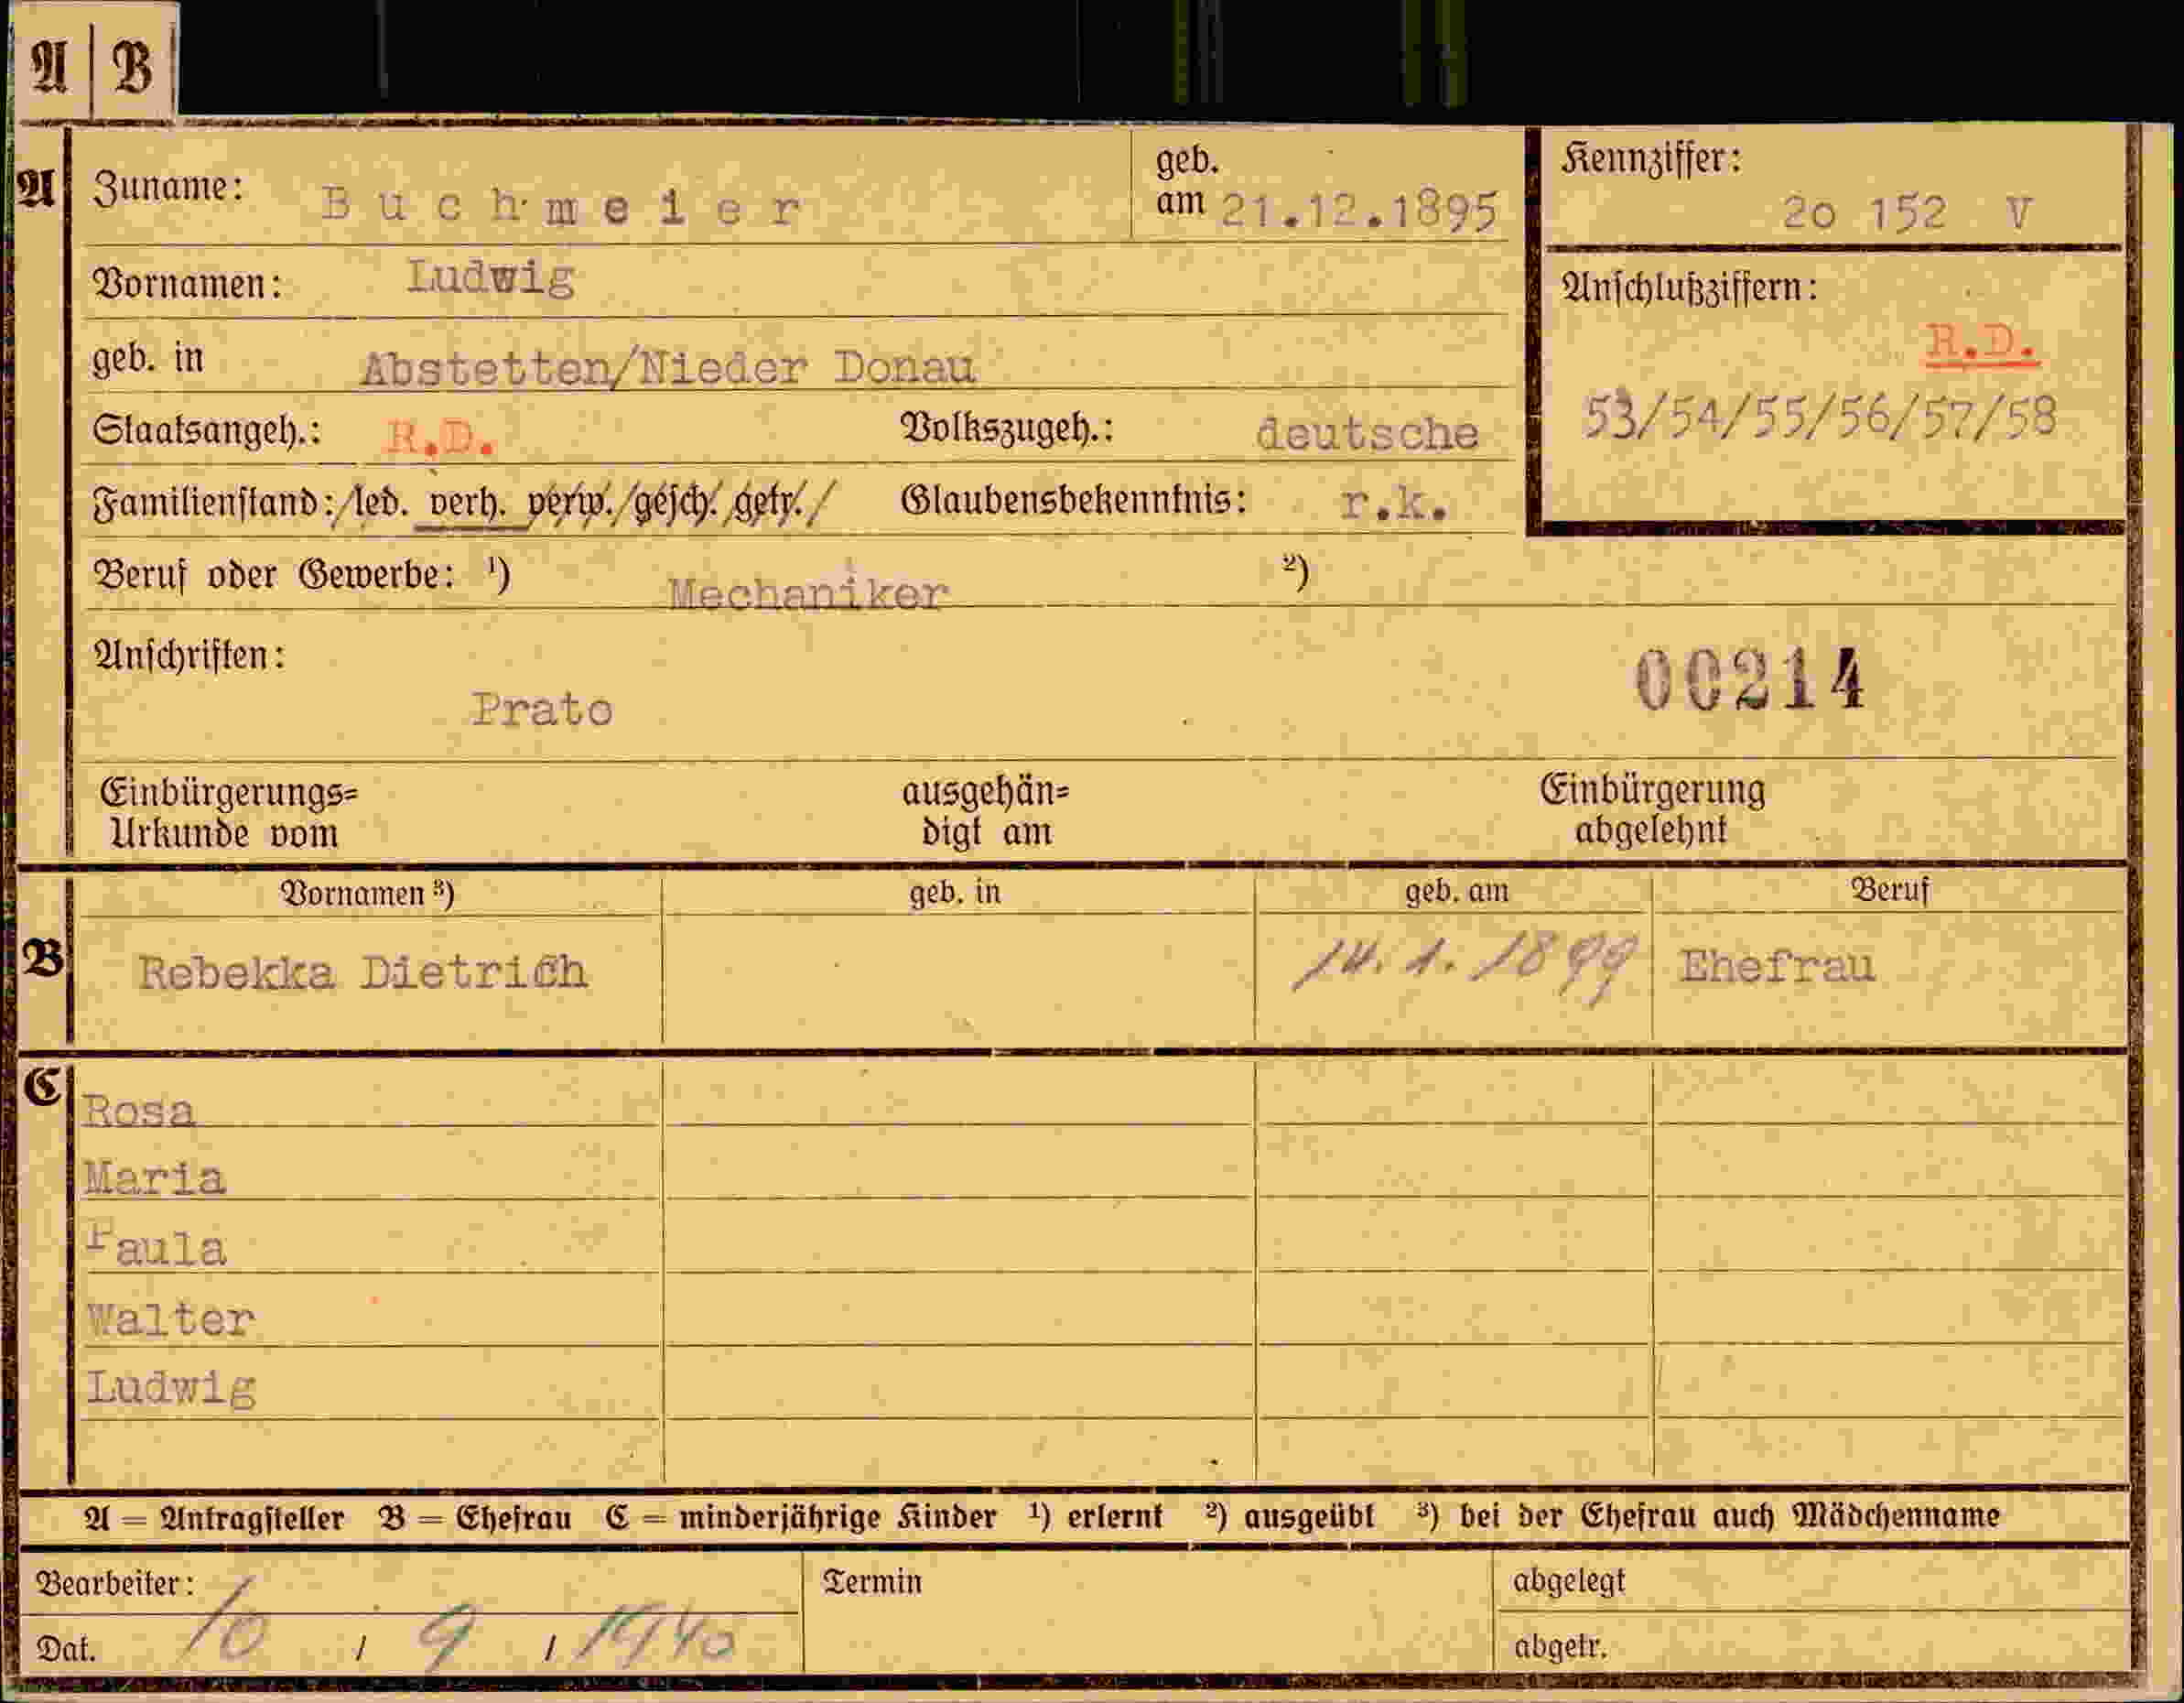 A | B
A Zuname: Buchmeier geb. am 21.12.1895 Kennziffer: 20 152 V
Vornamen: Ludwig
Anschlußziffern:
R.D.
geb. in Abstetten/Nieder Donau
53/54/55/56/57/58
Staatsangeh.: R.D. Volkszugeh.: deutsche
Familienstand: led. verh. verw. gesch. getr. Glaubensbekenntnis: r.k.
Beruf oder Gewerbe: ¹) Mechaniker ²)
Anschriften:
00214
Prato
Einbürgerungs= ausgehän= Einbürgerung
Urkunde vom digt am abgelehnt
Vornamen ³) geb. in geb. am Beruf
B Rebekka Dietrich 14.1.1899 Ehefrau
C Rosa
Maria
Paula
Walter
Ludwig
A = Antragsteller B = Ehefrau C = minderjährige Kinder ¹) erlernt ²) ausgeübt ³) bei der Ehefrau auch Mädchenname
Bearbeiter: Termin abgelegt
Dat. 10 / 9 / 1940 abgetr.